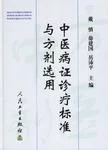 戴 慎 薛建国 岳沛平 主编
中医病证诊疗标准
与方剂选用
人民卫生出版社